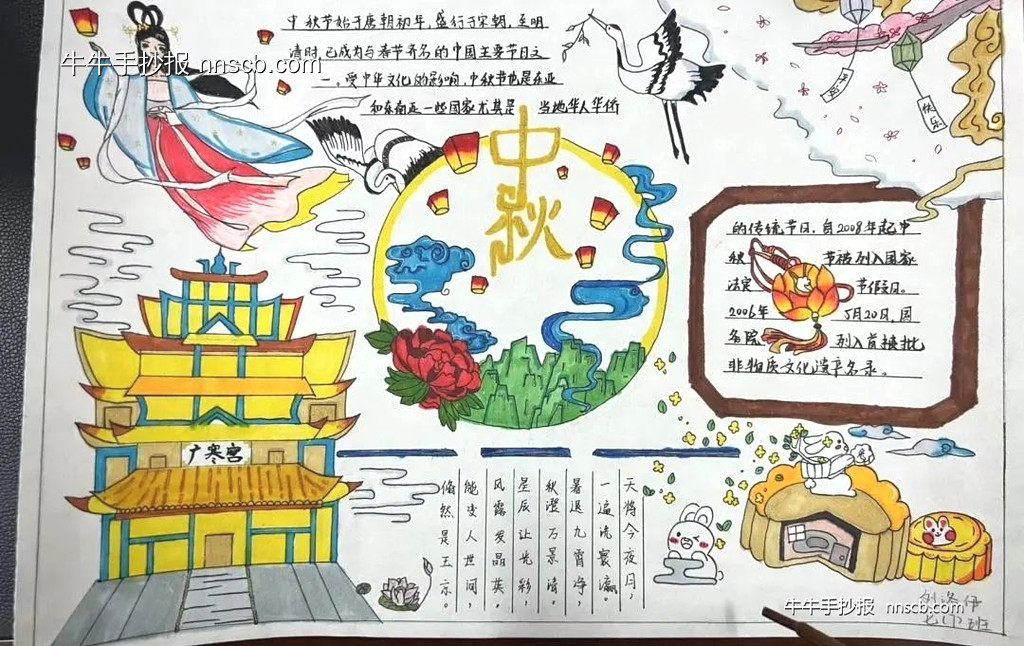 中秋节始于唐朝初年,盛行于宋朝,至明
清时,已成为与春节齐名的中国主要节日之
一。受中华文化的影响,中秋节也是东亚
和东南亚一些国家尤其是 当地华人华侨
牛牛手抄报 nnscb.com
中秋
快乐
的传统节日。自2008年起中
秋 节被列入国家
法定 节假日。
2006年 5月20日,国
务院 列入首批
非物质文化遗产名录。
广寒宫
天将今夜月,
一遍洗寰瀛。
暑退九霄净,
秋澄万景清。
星辰让光彩,
风露发晶英。
能变人世间,
翛然是玉京。
牛牛手抄报 nnscb.com
班